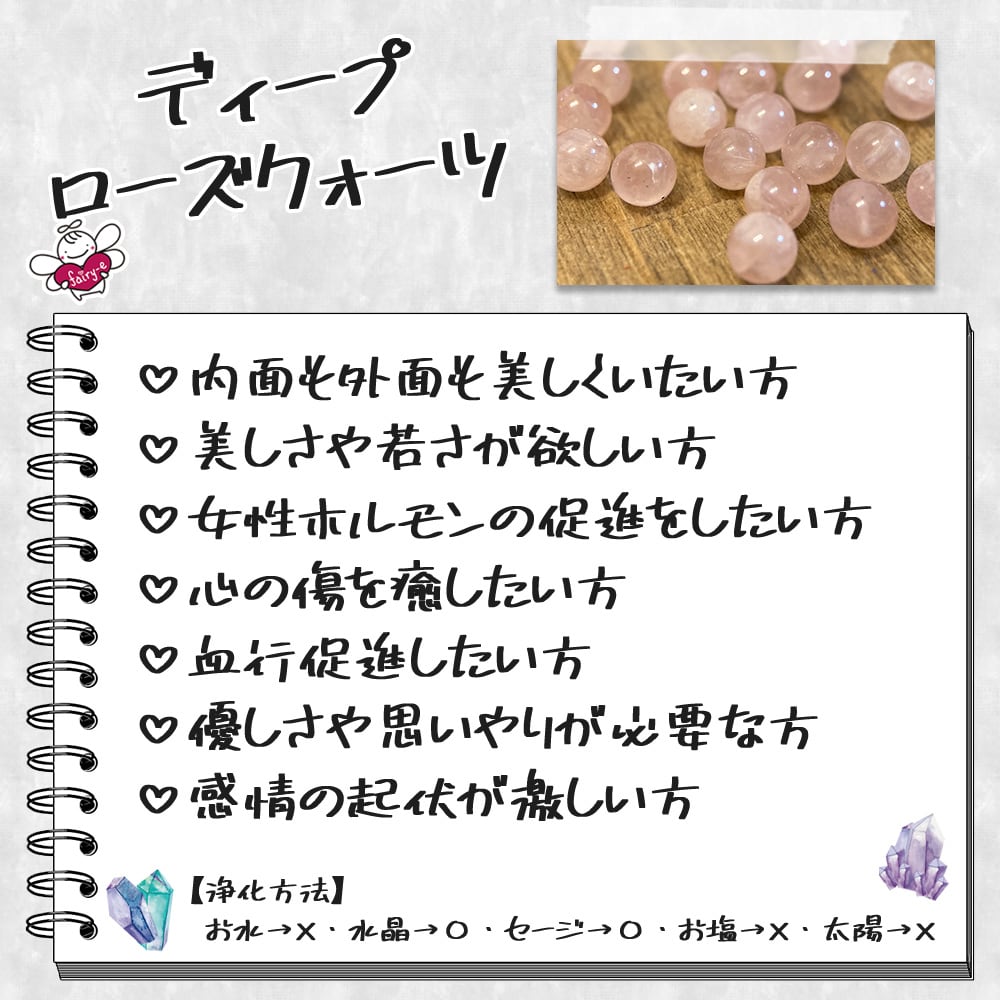 ディープ
ローズクォーツ
fairy-e
♡内面も外面も美しくいたい方
♡美しさや若さが欲しい方
♡女性ホルモンの促進をしたい方
♡心の傷を癒したい方
♡血行促進したい方
♡優しさや思いやりが必要な方
♡感情の起伏が激しい方
【浄化方法】
お水→×・水晶→○・セージ→○・お塩→×・太陽→×